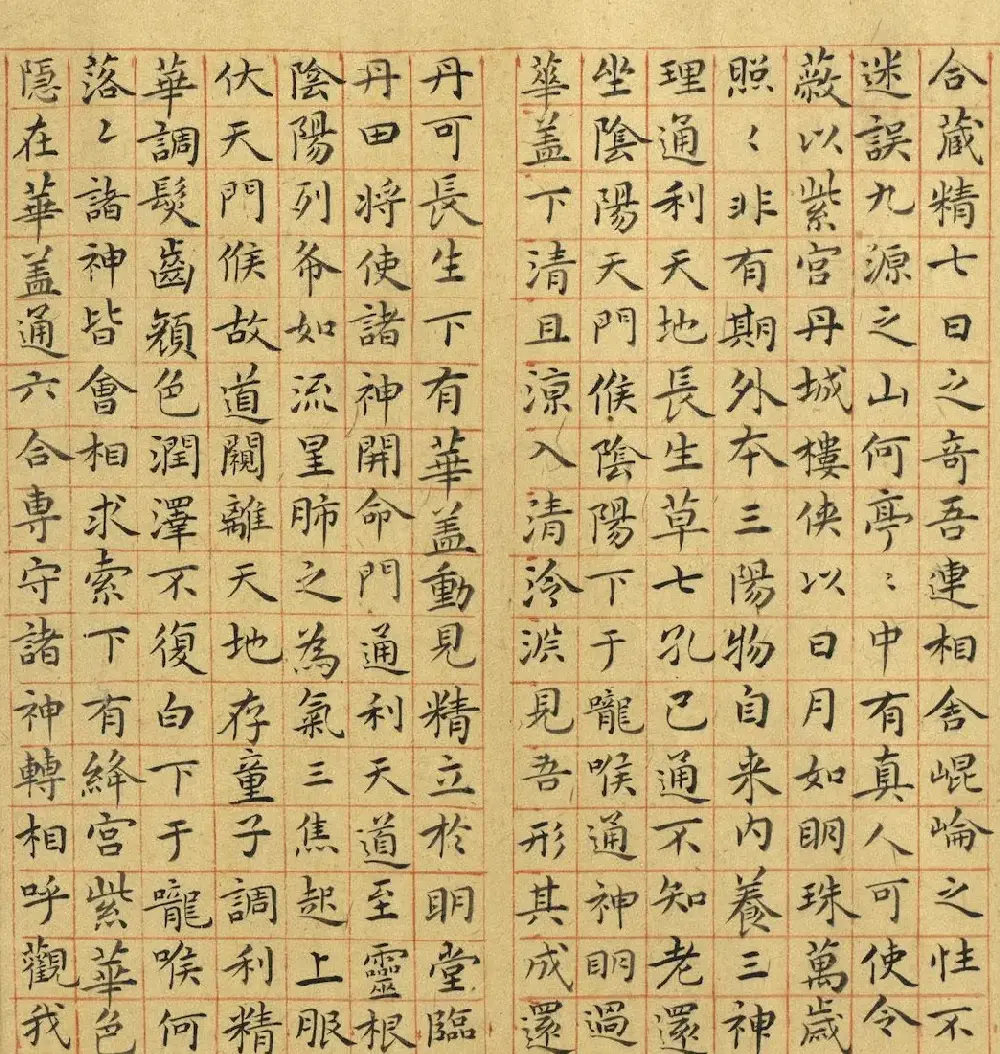 合藏精七日之奇吾連相舍崐崘之性不
迷誤九源之山何亭〻中有真人可使令
蔽以紫宮丹城樓侠以日月如明珠萬歲
照〻非有期外本三陽物自来内養三神
理通利天地長生草七孔已通不知老還
坐陰陽天門候陰陽下于嚨喉通神明過
華盖下清且涼入清泠淵見吾形其成還
丹可長生下有華盖動見精立於明堂臨
丹田将使諸神開命門通利天道至靈根
陰陽列布如流星肺之為氣三焦起上服
伏天門候故道闚離天地存童子調利精
華調髮齒顏色潤澤不復白下于嚨喉何
落〻諸神皆會相求索下有絳宮紫華色
隱在華盖通六合専守諸神轉相呼觀我